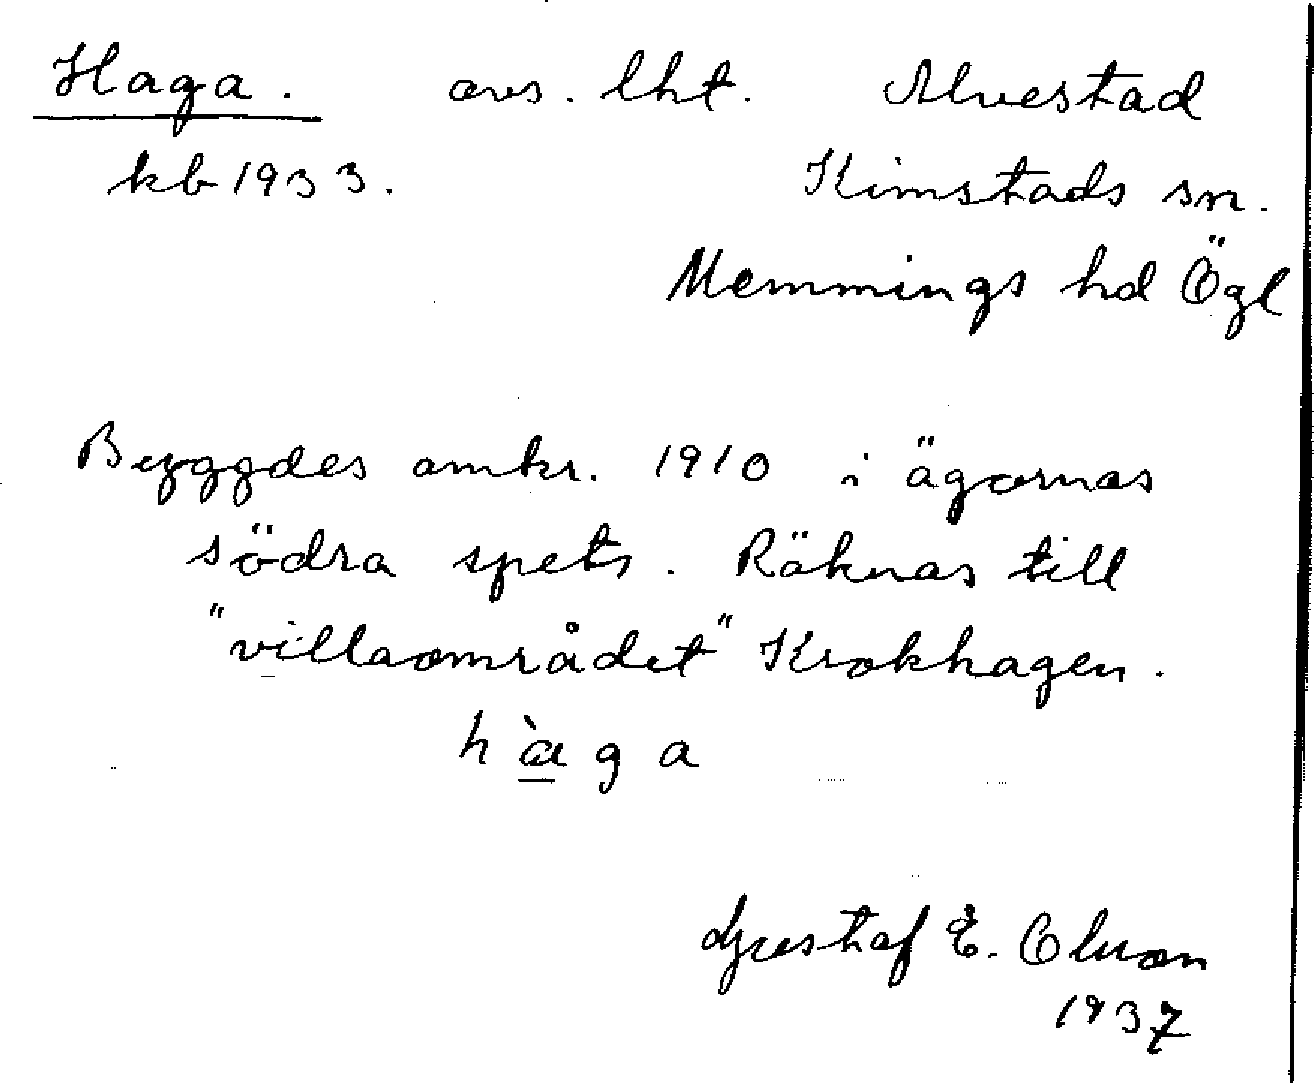 Haga. avs. lht. Alvestad
kb 1933. Kimstads sn.
Memmings hd Ögl
Byggdes omkr. 1910 i ägornas
södra spets. Räknas till
"villaområdet" Krokhagen.
hàga
Gustaf E. Olson
1937